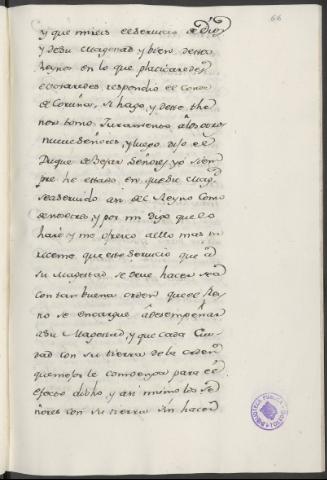 66
y que mireis el servicio de Dios
y de su Magestad y bien destos
Reynos en lo que platicaredes
e votaredes respondio el Conde
de Coruña, Si hago, y deste the
nor tomo Juramento a los otros
nueve Señores, y luego dijo el
Duque de Bejar Señores yo siem
pre he estado en que su Mag.d
sea servido asi del Reyno como
de nosotros, y por mi digo que lo
haré y me ofrezco a ello mas mi
que este servicio que a
su Magestad se deve hacer sea
con tan buena orden que el Rei
no se encargue a desempeñar
a su Magestad, y que cada Ciu
dad con su tierra de la orden
que mejor le convenga para el
efecto dicho, y asi mismo los Se
ñores con su tierra sin hacer
BIBLIOTECA PUBLICA
TOLEDO